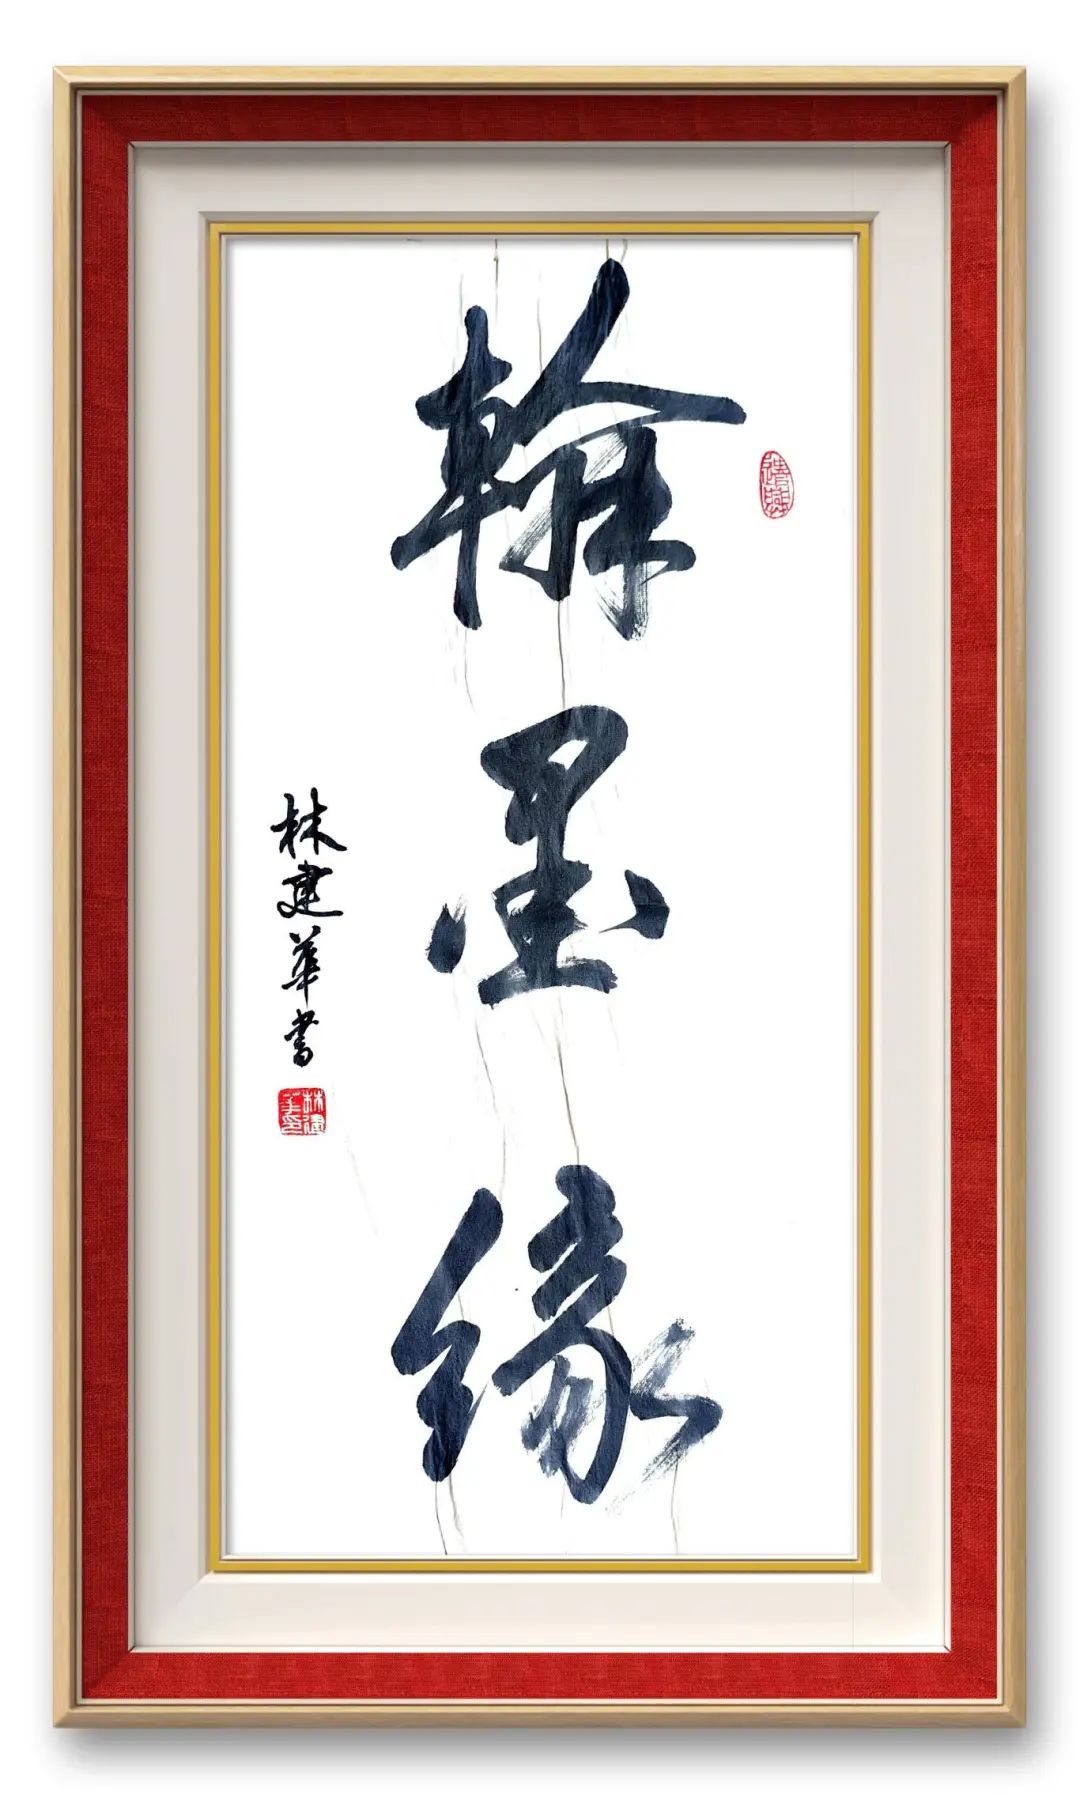 翰墨缘
林建華書
林建華印